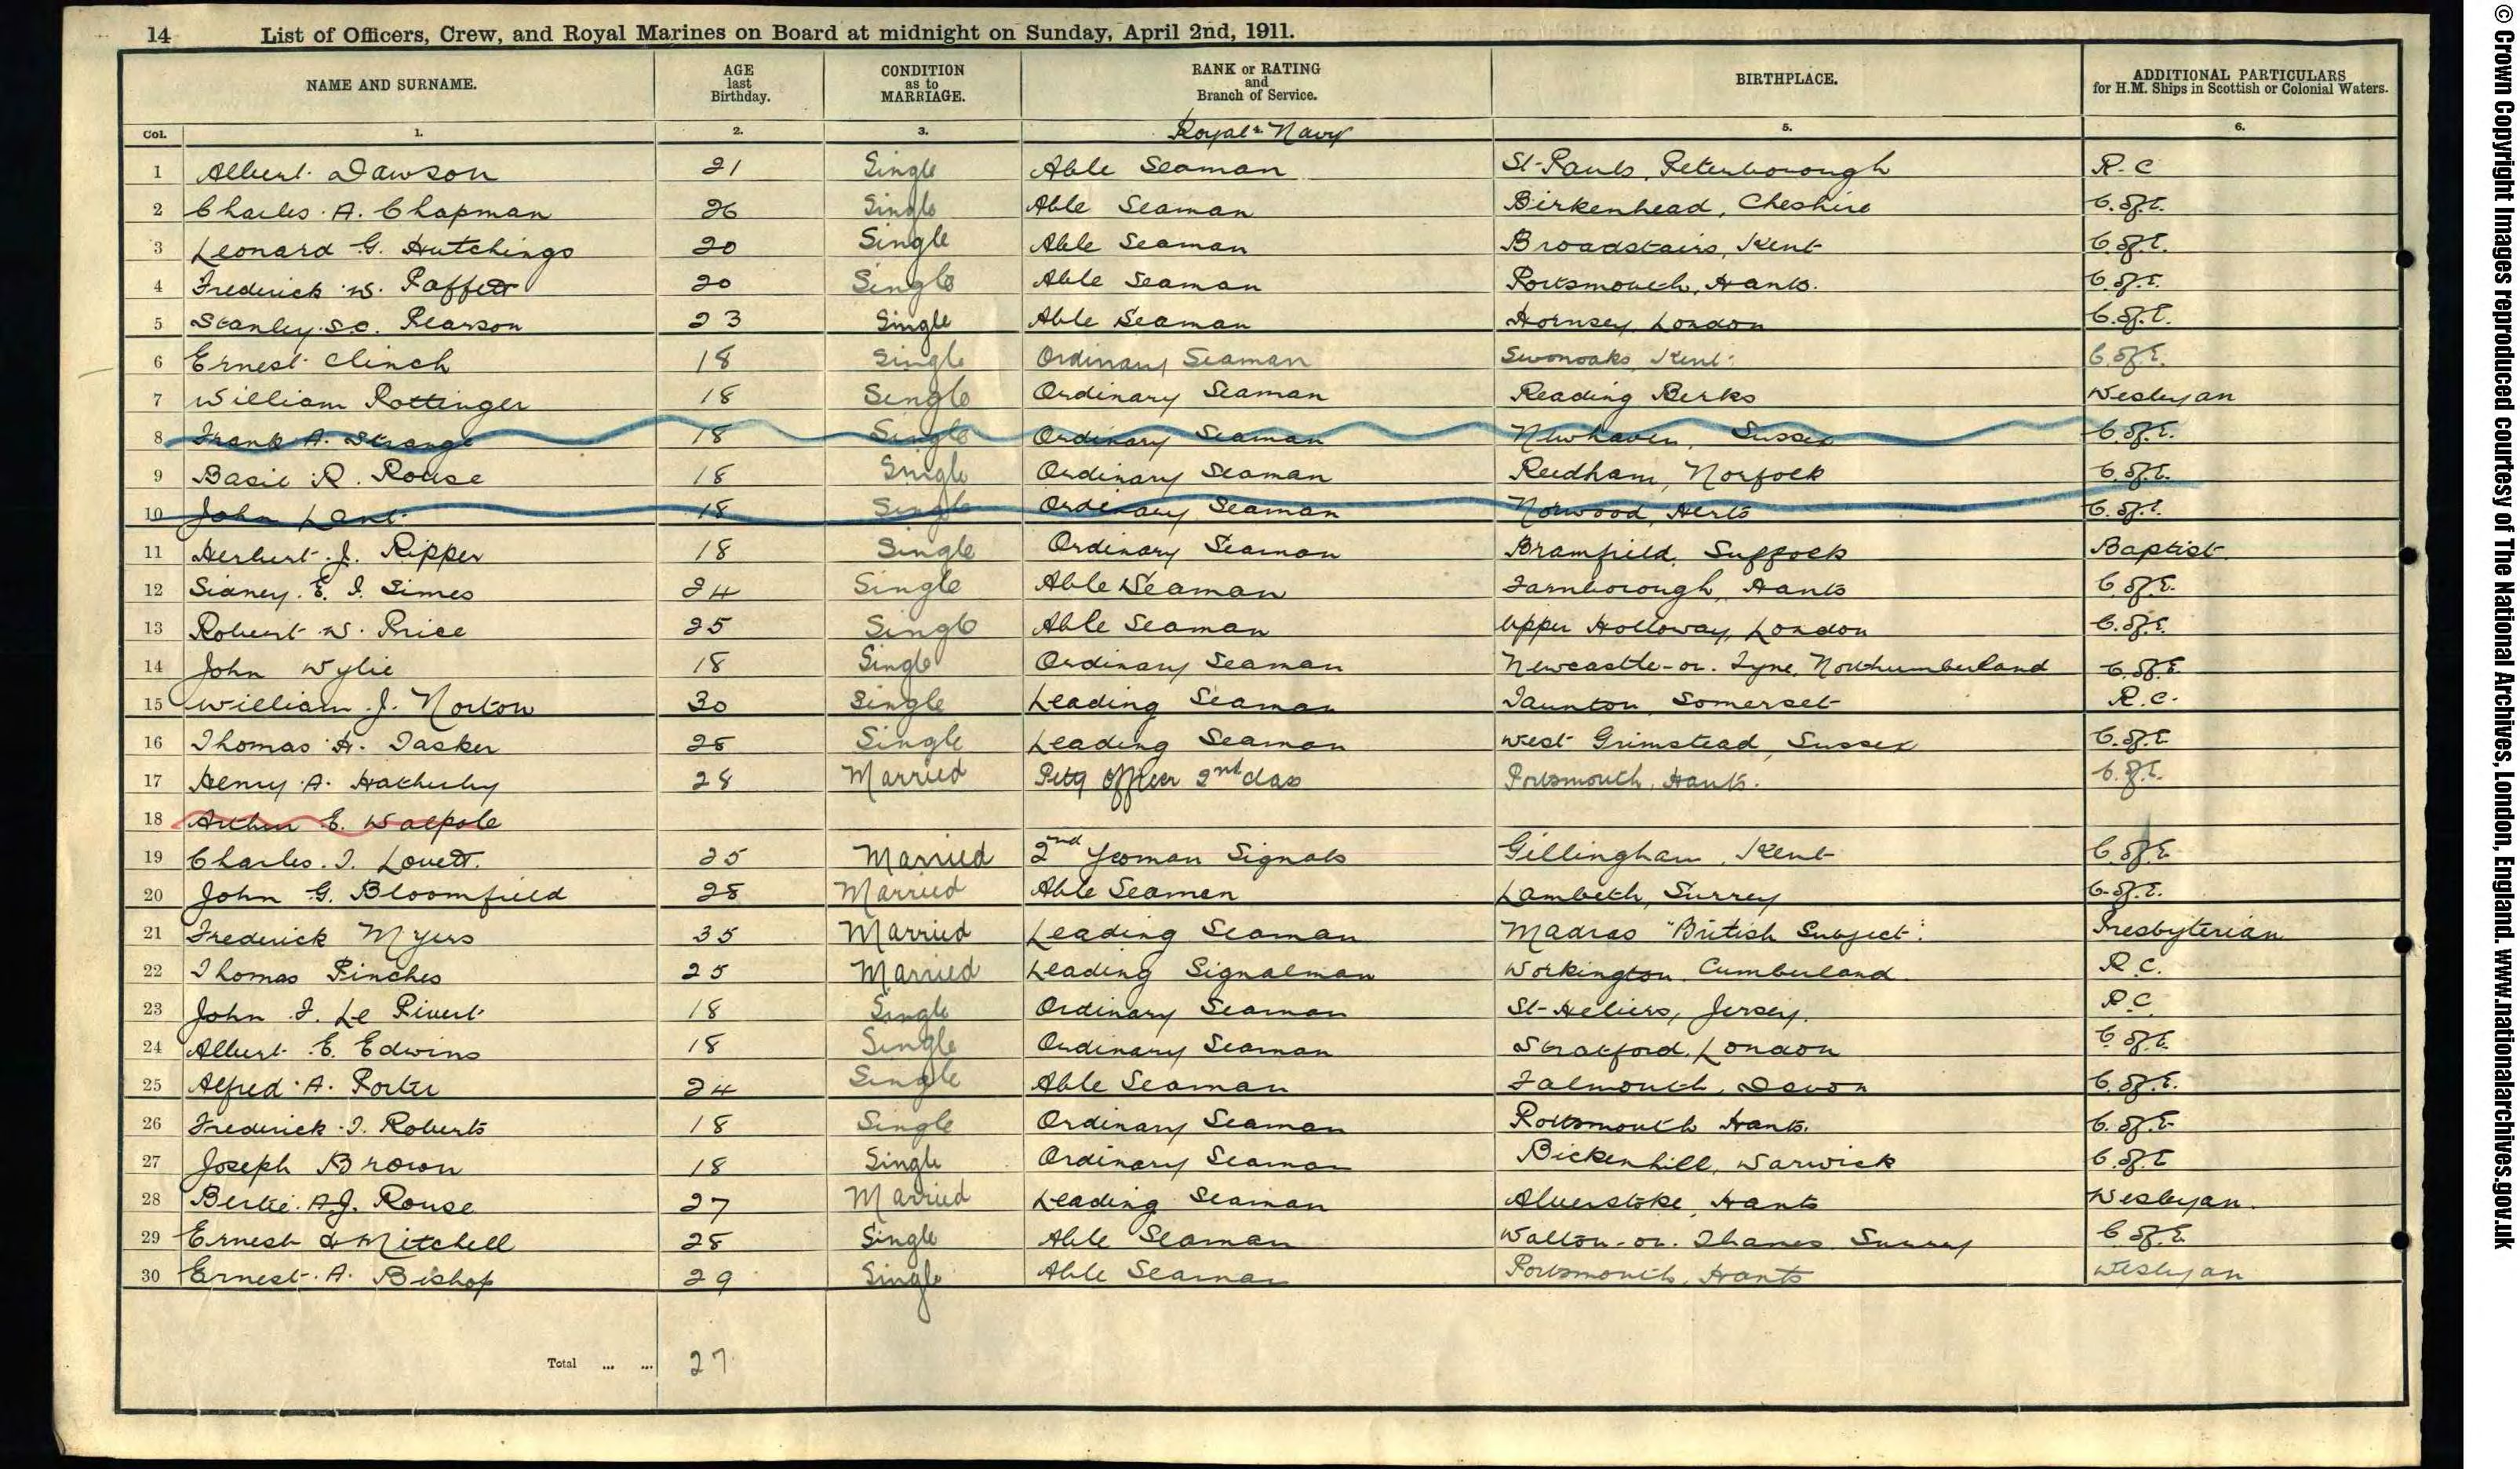 14 List of Officers, Crew, and Royal Marines on Board at midnight on Sunday, April 2nd, 1911.
NAME AND SURNAME. AGE last Birthday. CONDITION as to MARRIAGE. RANK or RATING and Branch of Service. BIRTHPLACE. ADDITIONAL PARTICULARS for H.M. Ships in Scottish or Colonial Waters.
Col. 1. 2. 3. Royal Navy 5. 6.
1 Albert Dawson 21 Single Able Seaman St Pauls, Peterborough R.C
2 Charles A. Chapman 26 Single Able Seaman Birkenhead, Cheshire C.of.E.
3 Leonard G. Hutchings 20 Single Able Seaman Broadstairs, Kent C.of.E.
4 Frederick W. Paffett 20 Single Able Seaman Portsmouth, Hants. C.of.E.
5 Stanley S.C. Pearson 23 Single Able Seaman Hornsey London C.of.E.
6 Ernest Clinch 18 Single Ordinary Seaman Sevonoaks, Kent. C.of.E.
7 William Pottinger 18 Single Ordinary Seaman Reading Berks Wesleyan
8 Frank A. Strange 18 Single Ordinary Seaman Newhaven, Sussex C.of.E.
9 Basil R. Rouse 18 Single Ordinary Seaman Reedham, Norfolk C.of.E.
10 John Lent 18 Single Ordinary Seaman Norwood, Herts C.of.E.
11 Herbert J. Ripper 18 Single Ordinary Seaman Bramfield, Suffolk Baptist
12 Sidney E. J. Simes 24 Single Able Seaman Farnborough, Hants C.of.E.
13 Robert W. Price 25 Single Able Seaman Upper Holloway, London C.of.E.
14 John Wylie 18 Single Ordinary Seaman Newcastle-on-Tyne, Northumberland C.of.E.
15 William J. Norton 30 Single Leading Seaman Taunton, Somerset R.C.
16 Thomas H. Tasker 28 Single Leading Seaman West Grimstead, Sussex C.of.E.
17 Henry A. Hatherley 28 Married Petty Officer 2nd class Portsmouth, Hants. C.of.E.
18 Arthur E. Walpole
19 Charles. T. Lovett. 25 Married 2nd Yeoman Signals Gillingham, Kent C.of.E.
20 John G. Bloomfield 28 Married Able Seamen Lambeth, Surrey C.of.E.
21 Frederick Myers 35 Married Leading Seaman Madras "British Subject". Presbyterian
22 Thomas Pinches 25 Married Leading Signalman Workington Cumberland. R.C.
23 John F. Le Rivert 18 Single Ordinary Seaman St Heliers, Jersey. R.C
24 Albert E. Edwins 18 Single Ordinary Seaman Stratford, London C of E.
25 Alfred A. Porter 24 Single Able Seaman Falmouth, Devon C.of.E.
26 Frederick T. Roberts 18 Single Ordinary Seaman Portsmouth Hants. C.of.E
27 Joseph Brown 18 Single Ordinary Seaman Bickenhill, Warwick C.of.E
28 Bertie A.J. Rouse 27 Married Leading Seaman Alverstoke, Hants Wesleyan.
29 Ernest Mitchell 28 Single Able Seaman Walton-on-Thames Surrey C of E
30 Ernest A. Bishop 29 Single Able Seaman Portsmouth, Hants Wesleyan
Total ... ... 27
© Crown Copyright Images reproduced courtesy of The National Archives, London, England. www.nationalarchives.gov.uk